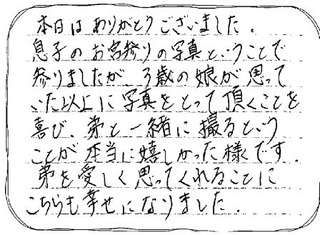 本日はありがとうございました。
息子のお宮参りの写真ということで
参りましたが、3歳の娘が思って
いた以上に写真をとって頂くことを
喜び、弟と一緒に撮るという
ことが本当に嬉しかった様です。
弟を愛しく思ってくれることに
こちらも幸せになりました。